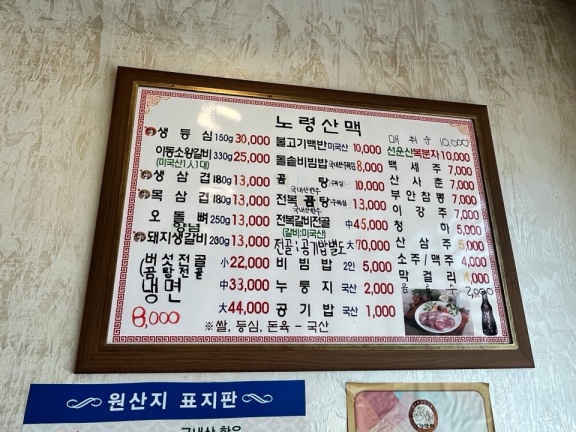 노령산맥
생등심 150g 30,000
이동소왕갈비 330g 25,000
(미국산 1人1대)
생삼겹 180g 13,000
목삼겹 180g 13,000
오돌뼈 250g 13,000
돼지생갈비 280g 13,000
(버섯전골 小 22,000
곰탕전골
中 33,000
냉면
大 44,000
8,000
불고기백반 미국산 10,000
돌솥비빔밥 8,000
곰탕 10,000
국내산한우
전복곰탕 13,000
국내산한우
전복갈비전골 中 45,000
(갈비:미국산)
전골:공기밥별도 大 70,000
비빔밥 2인 5,000
누룽지 국산 2,000
공기밥 국산 1,000
※쌀, 등심, 돈육 - 국산
매취순 10,000
선운산복분자 10,000
백세주 7,000
산사춘 7,000
부안참뽕 7,000
이강주 7,000
청하 5,000
산삼주
소주/맥주 4,000
막걸리 4,000
음료수 2,000
원산지 표지판
국내산 한우